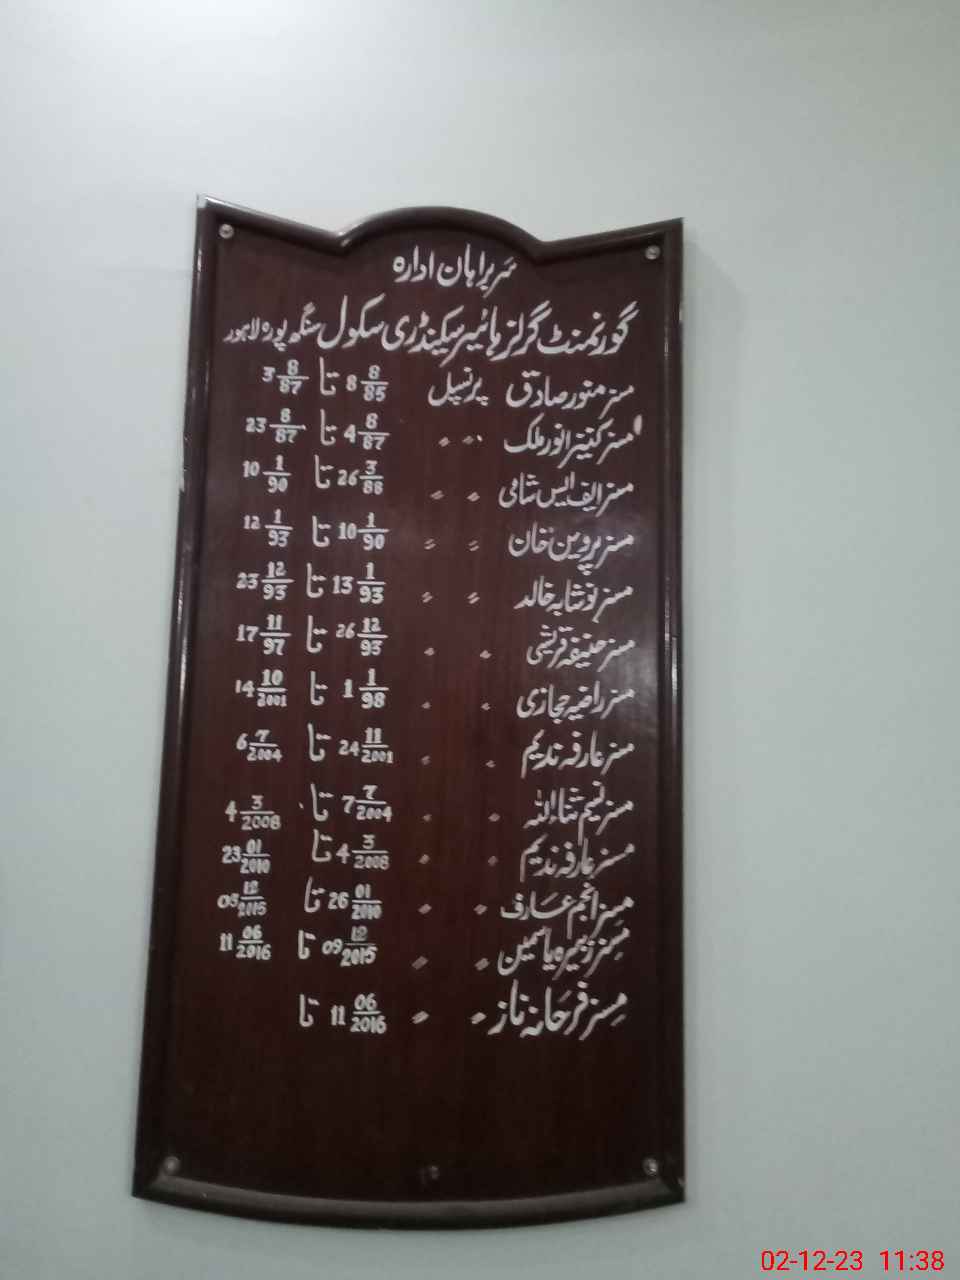 سربراہان ادارہ
گورنمنٹ گرلز ہائیر سیکنڈری سکول سنگھ پورہ لاہور
مسز منور صادق پرنسپل 8 8/85 تا 3 8/87
مسز کنیز انور ملک 〃 〃 4 8/87 تا 23 8/87
مسز ایف ایس شامی 〃 〃 26 3/88 تا 10 1/90
مسز پروین خان 〃 〃 10 1/90 تا 12 1/93
مسز نوشابہ خالد 〃 〃 13 1/93 تا 23 12/93
مسز حنیفہ قریشی 〃 〃 26 12/93 تا 17 11/97
مسز راضیہ حجازی 〃 〃 1 1/98 تا 14 10/2001
مسز عارفہ ندیم 〃 〃 24 11/2001 تا 6 7/2004
مسز نسیم ثناءاللہ 〃 〃 7 7/2004 تا 4 3/2008
مسز عارفہ ندیم 〃 〃 4 3/2008 تا 23 01/2010
مسز انجم عارف 〃 〃 26 01/2010 تا 03 12/2015
مسز زبیرہ یاسمین 〃 〃 09 12/2015 تا 11 06/2016
مسز فرحانہ ناز 〃 〃 11 06/2016 تا
02-12-23 11:38